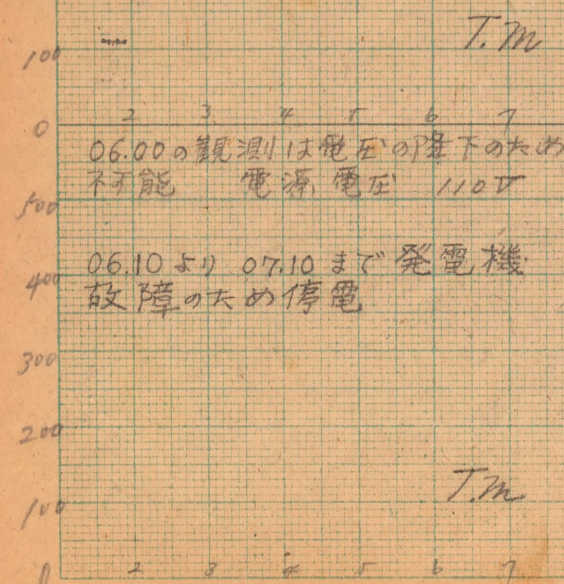 T.M
100
0
2 3 4 5 6 7
06.00の観測は電圧の降下のため
不可能 電源電圧 110V
500
06.10より 07.10まで発電機
400
故障のため停電
300
200
T.M
100
0
2 3 4 5 6 7